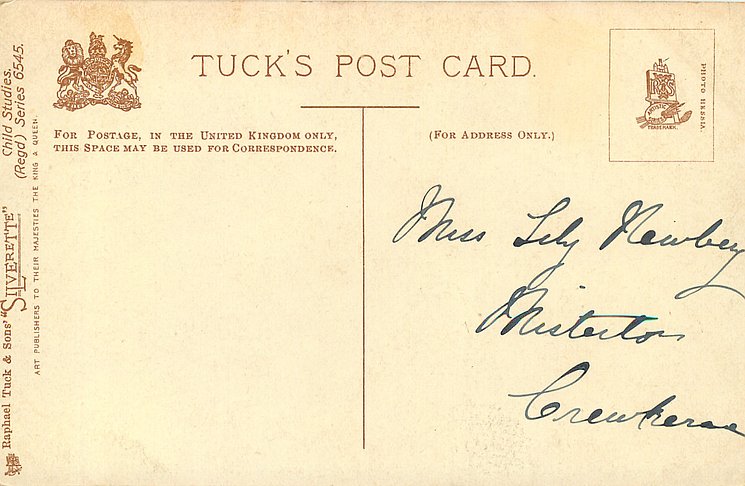 TUCK'S POST CARD.
FOR POSTAGE, IN THE UNITED KINGDOM ONLY,
THIS SPACE MAY BE USED FOR CORRESPONDENCE.
(FOR ADDRESS ONLY.)
Miss Lily Newbery
Misterton
Crewkerne
Raphael Tuck & Sons' "SILVERETTE"
Child Studies.
(Regd) Series 6545.
ART PUBLISHERS TO THEIR MAJESTIES THE KING & QUEEN.
PHOTO HESSIA.
ARTISTIC
TRADE MARK.